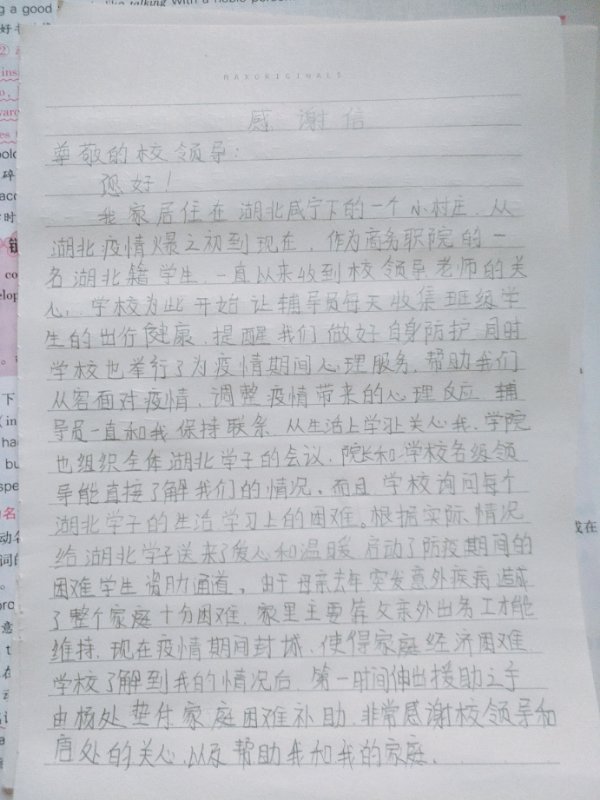 MAXORIGINALS
感 谢 信
尊敬的校领导:
您好!
我家居住在湖北咸宁下的一个小村庄,从
湖北疫情爆之初到现在,作为商务职院的一
名湖北籍学生,一直以来收到校领导老师的关
心,学校为此开始让辅导员每天收集班级学
生的出行健康,提醒我们做好自身防护,同时
学校也举行了为疫情期间心理服务,帮助我们
从容面对疫情,调整疫情带来的心理反应,辅
导员一直和我保持联系,从生活上学习上关心我,学院
也组织全体湖北学子的会议,院长和学校各级领
导能直接了解我们的情况。而且学校询问每个
湖北学子的生活学习上的困难。根据实际情况
给湖北学子送来了爱心和温暖,启动了防疫期间的
困难学生资助通道。由于母亲去年突发意外疾病造成
了整个家庭十分困难,家里主要靠父亲外出务工才能
维持,现在疫情期间封城,使得家庭经济困难,
学校了解到我的情况后,第一时间伸出援助之手
由杨处垫付家庭困难补助,非常感谢校领导和
处的关心,以及帮助我和我的家庭.